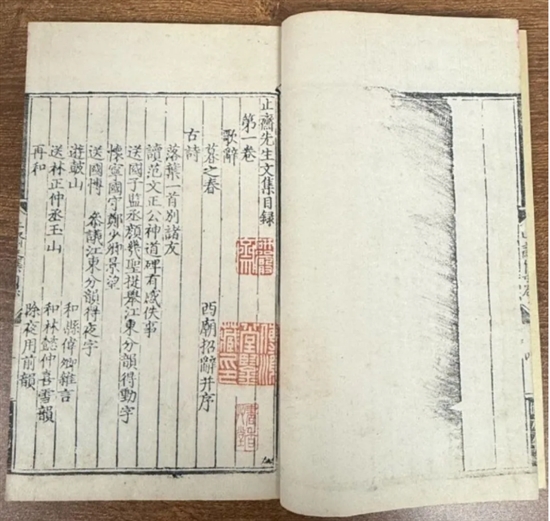 止齋先生文集目録
第一卷
歌辭
暮之春 西廟招辭并序
古詩
落葉一首别諸友
讀范文正公神道碑有感佚事
送國子監丞顔幾聖提舉江東分韻得動字
懷寧國守鄭少卿景望
送國博 㕘議江東分韻得夜字
遊鼓山 和縣倅卿雜言
送林正仲丞玉山 和林懿仲喜雪韻
再和 除夜用前韻